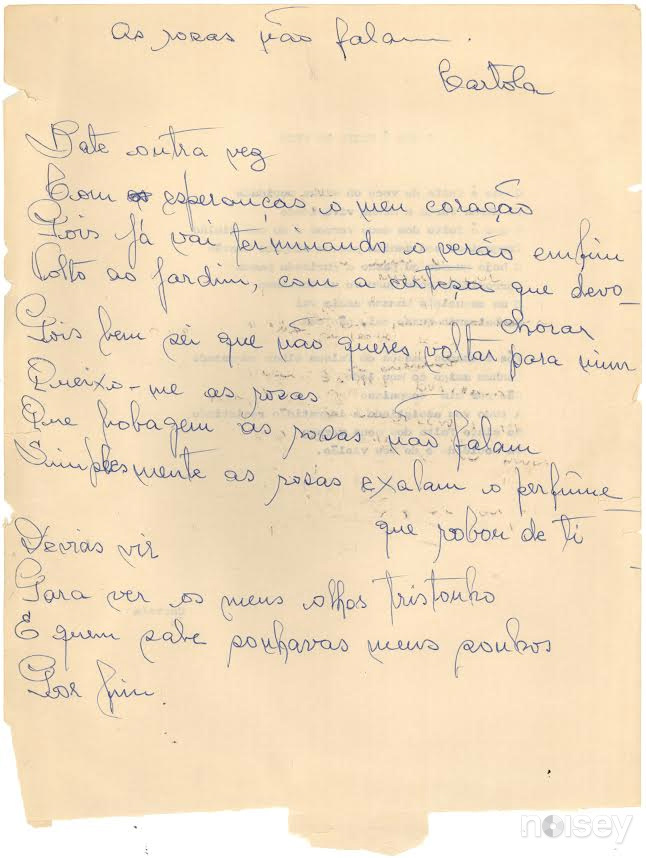 As rosas não falam.
Cartola
Bate outra vez
Com esperanças o meu coração
Pois já vai terminando o verão emfim
Volto ao jardim, com a certeza que devo
chorar
Pois bem sei que não queres voltar para mim
Queixo-me as rosas
Que bobagem as rosas não falam
Simplesmente as rosas exalam o perfume
que robou de ti
Devias vir
Para ver os meus olhos tristonho
E quem sabe sonhavas meus sonhos
Por fim
noisey